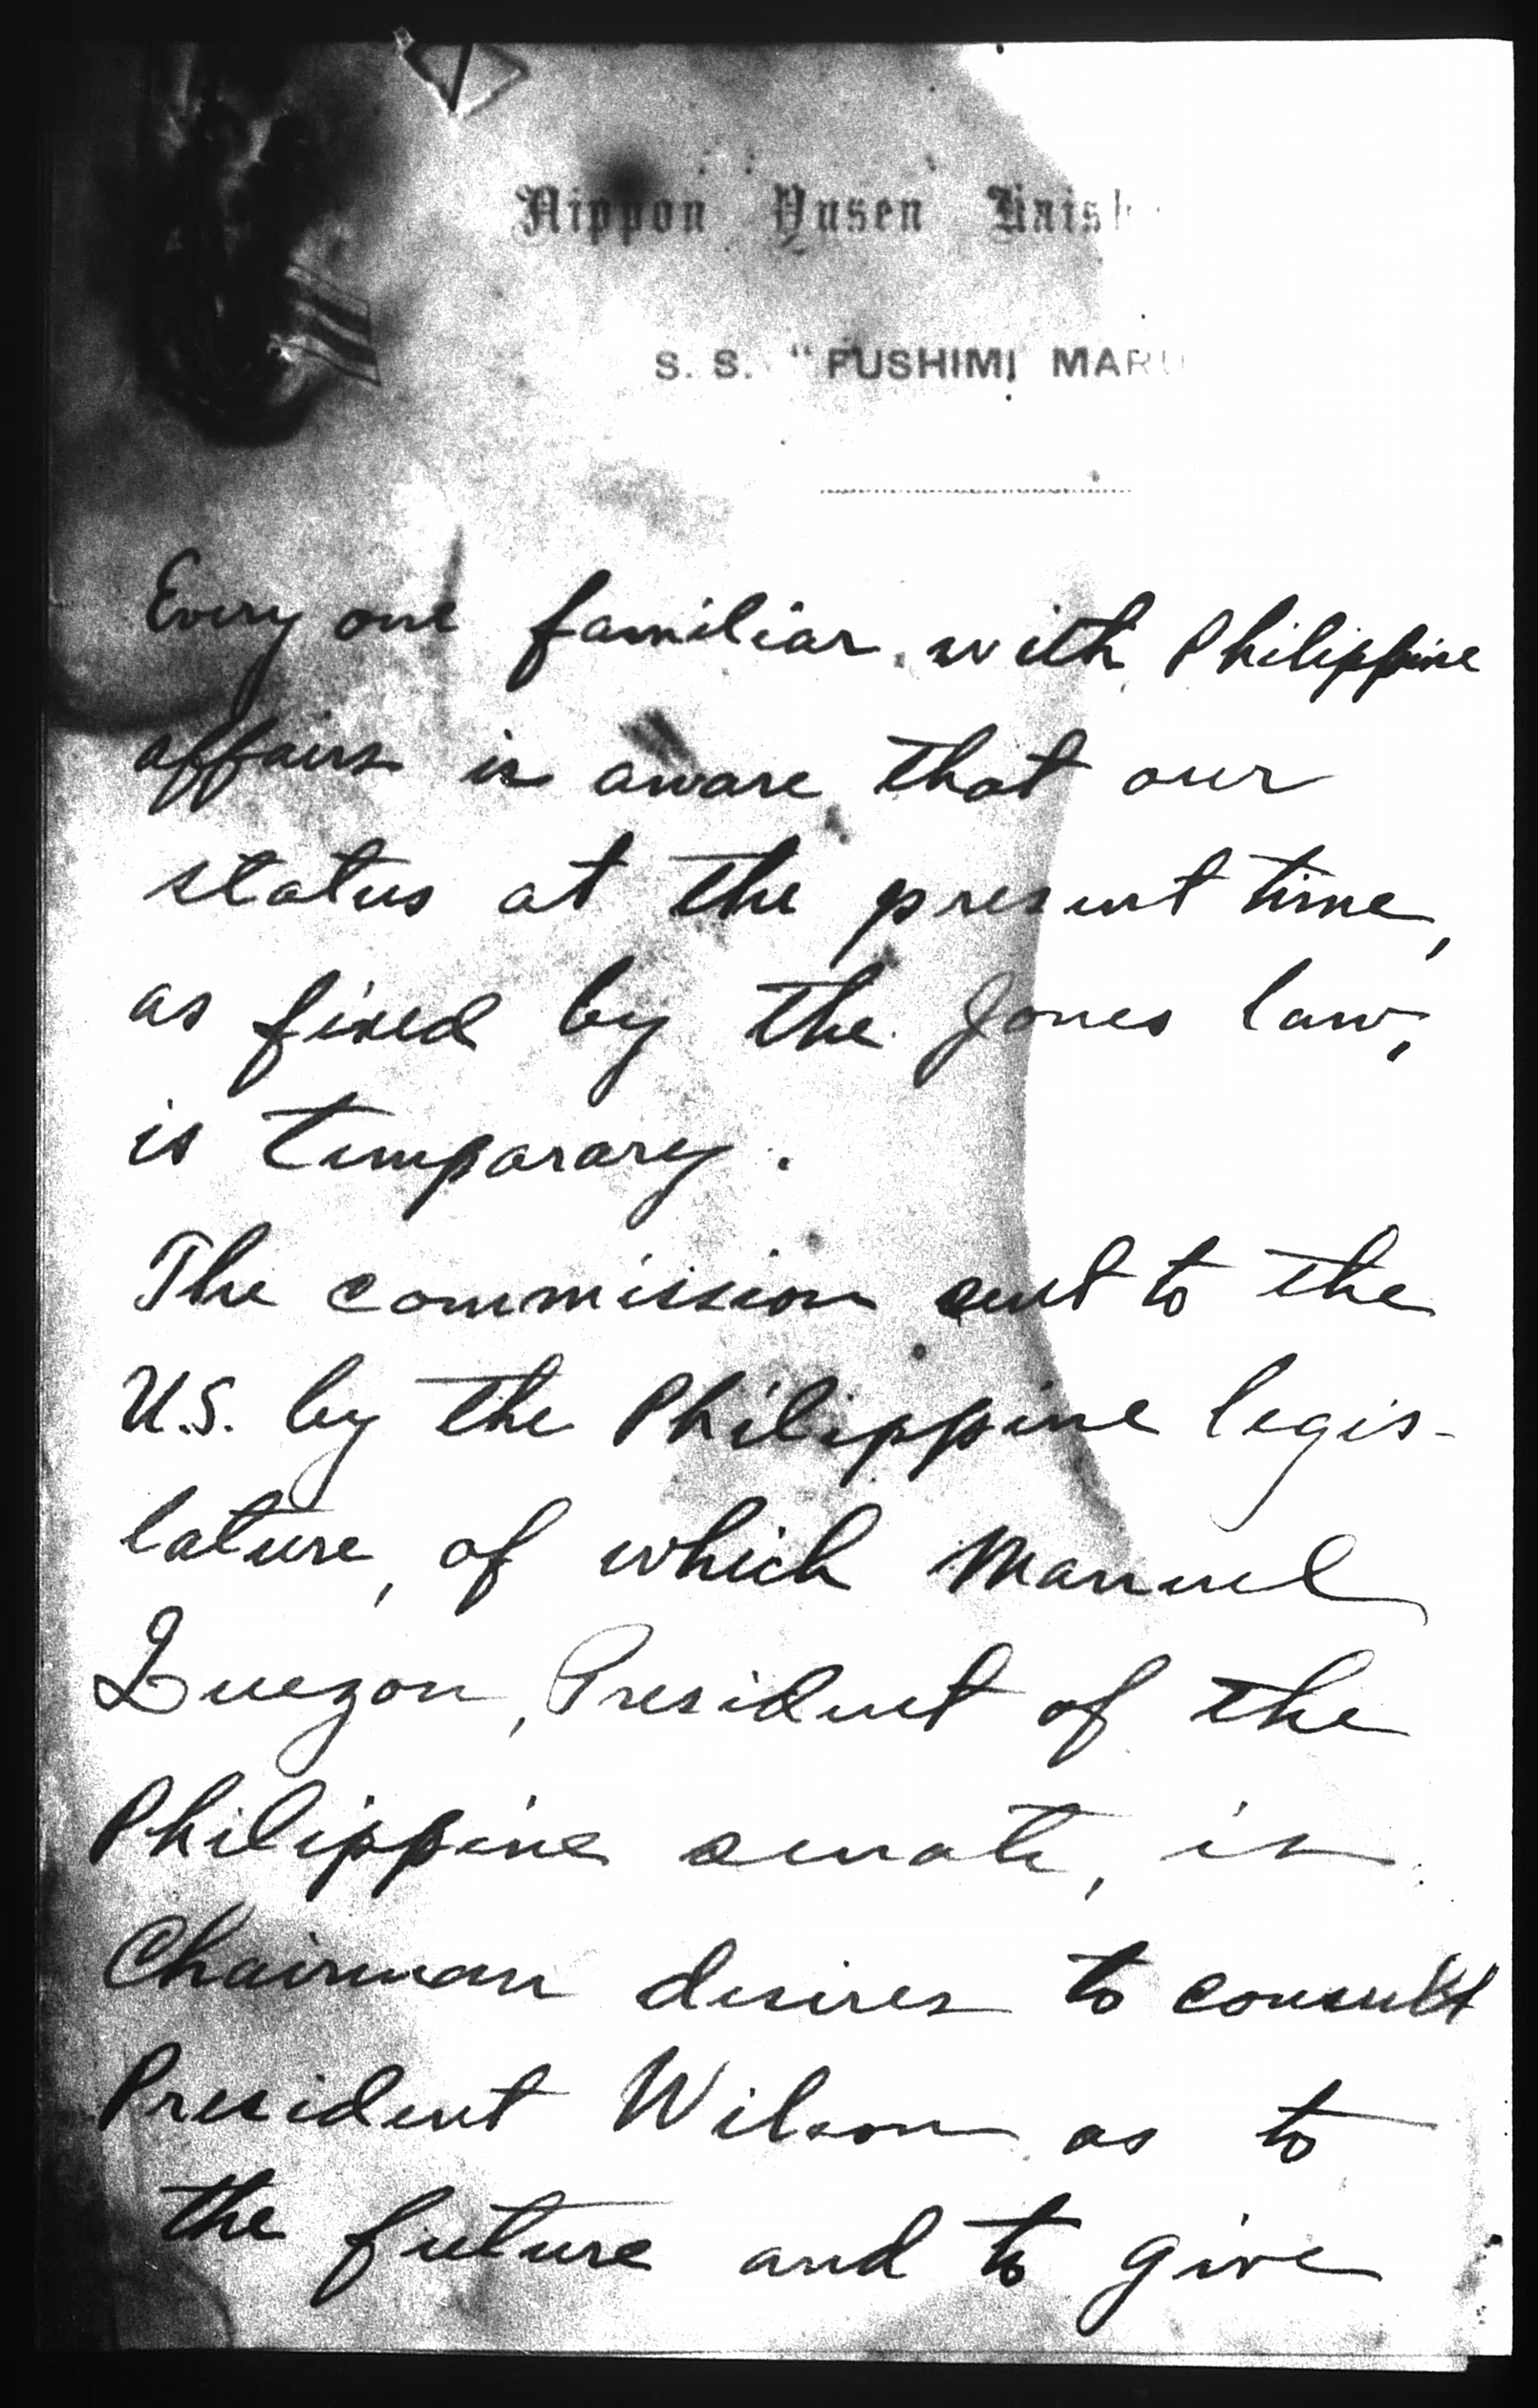 Nippon Yusen Kaish
S. S. "FUSHIMI MARU
Every one familiar with Philippine
affairs is aware that our
status at the present time,
as fixed by the Jones law,
is temporary.
The commission sent to the
U.S. by the Philippine legis-
lature, of which Manuel
Quezon, President of the
Philippine senate, is
Chairman desires to consult
President Wilson as to
the future and to give